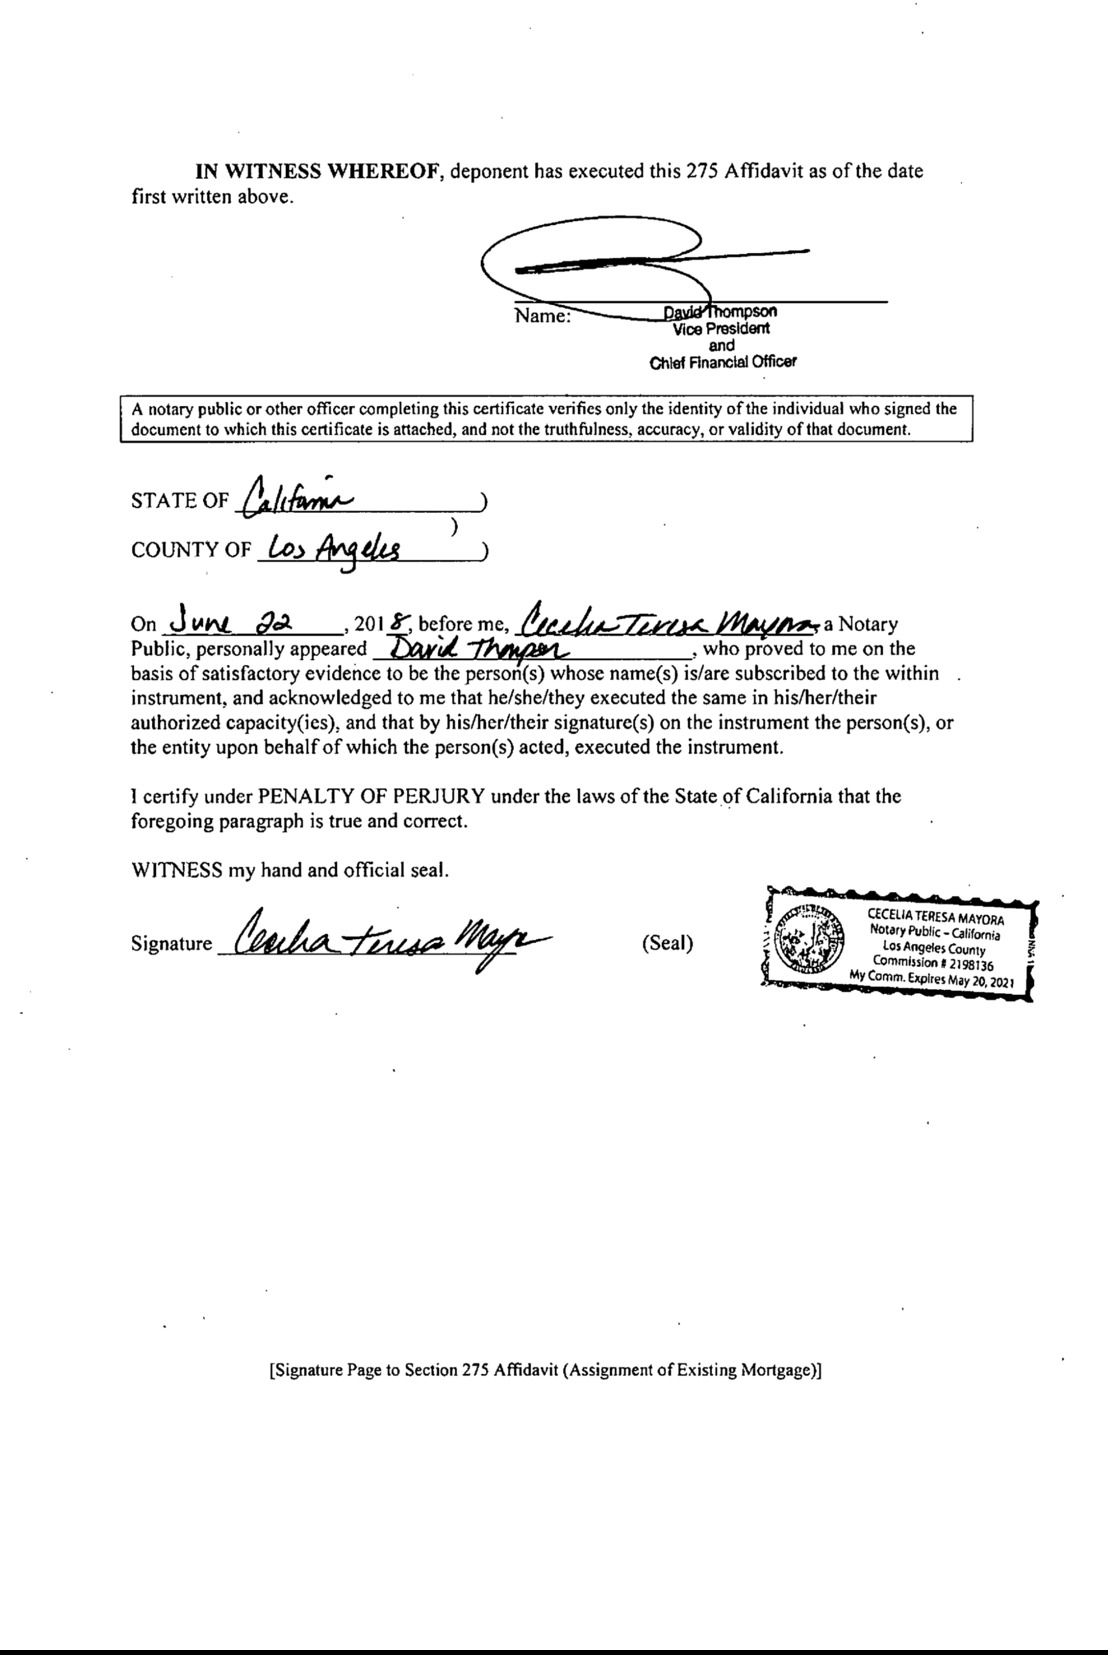 IN WITNESS WHEREOF, deponent has executed this 275 Affidavit as of the date
first written above.
Name:
David Thompson
Vice President
and
Chief Financial Officer
A notary public or other officer completing this certificate verifies only the identity of the individual who signed the
document to which this certificate is attached, and not the truthfulness, accuracy, or validity of that document.
STATE OF California )
)
COUNTY OF Los Angeles )
On June 22, 2018, before me, Cecelia Teresa Mayora, a Notary
Public, personally appeared David Thompson, who proved to me on the
basis of satisfactory evidence to be the person(s) whose name(s) is/are subscribed to the within
instrument, and acknowledged to me that he/she/they executed the same in his/her/their
authorized capacity(ies), and that by his/her/their signature(s) on the instrument the person(s), or
the entity upon behalf of which the person(s) acted, executed the instrument.
I certify under PENALTY OF PERJURY under the laws of the State of California that the
foregoing paragraph is true and correct.
WITNESS my hand and official seal.
Signature Cecelia Teresa Mayora (Seal)
CECELIA TERESA MAYORA
Notary Public - California
Los Angeles County
Commission # 2198136
My Comm. Expires May 20, 2021
[Signature Page to Section 275 Affidavit (Assignment of Existing Mortgage)]